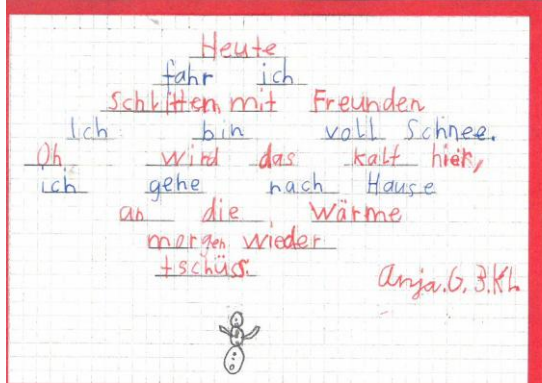 Heute
fahr ich
Schlitten mit Freunden
Ich bin voll Schnee.
Oh wird das kalt hier,
ich gehe nach Hause
an die Wärme
morgen wieder
tschüss.
Anja.G. 3.Kl